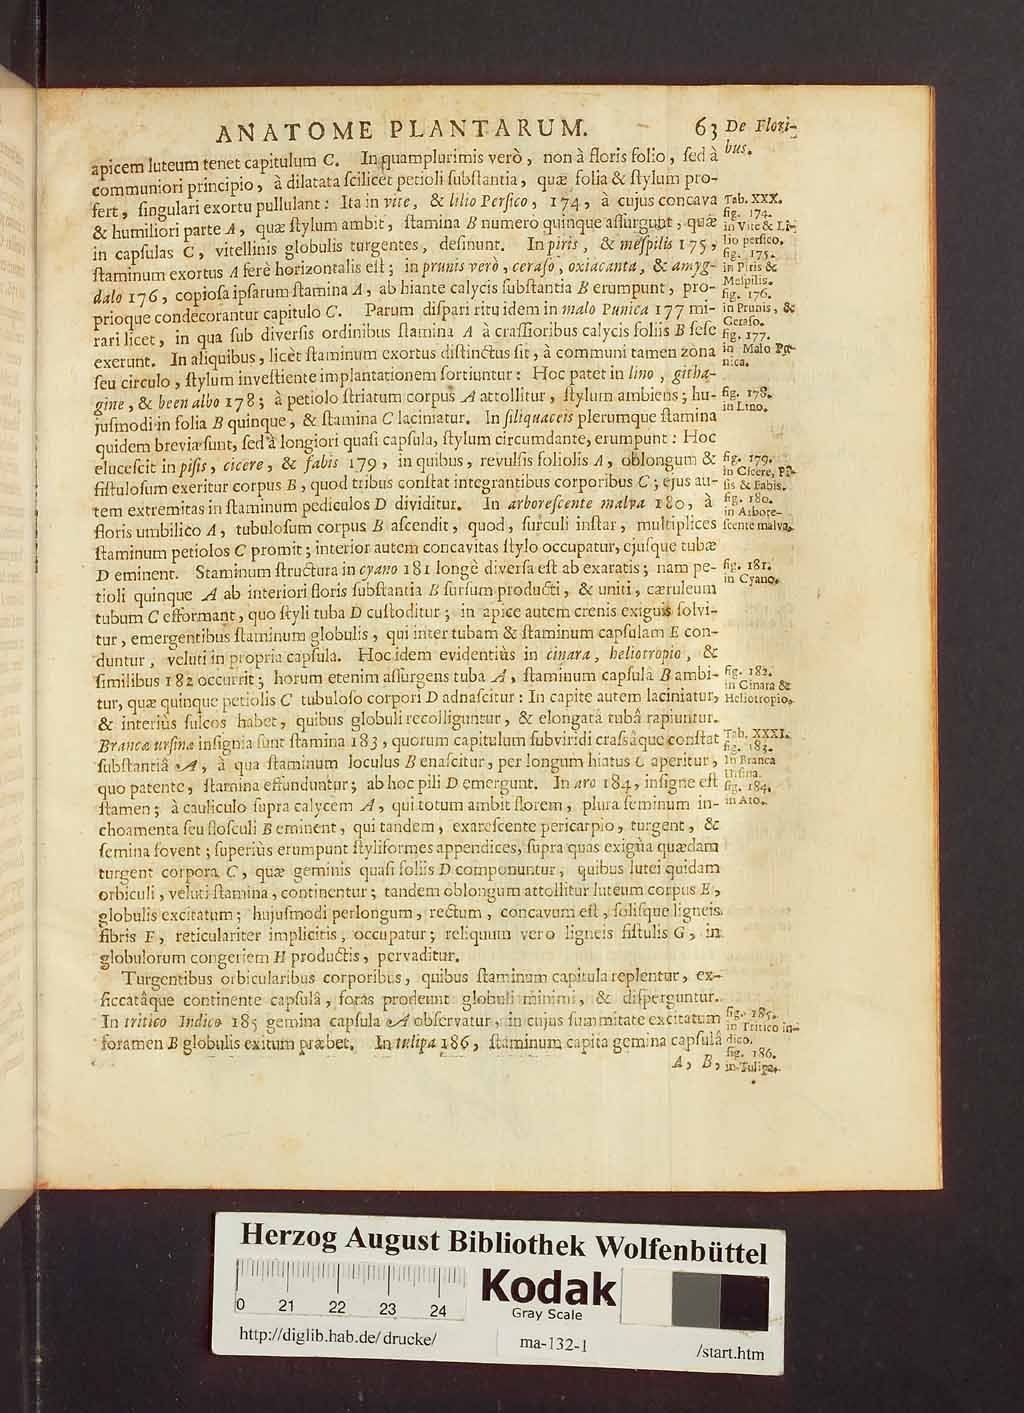 ANATOME PLANTARUM. 63 De Flori-
bus.
apicem luteum tenet capitulum C. In quamplurimis verò, non à floris folio, ſed à
communiori principio, à dilatata ſcilicet petioli ſubſtantia, quæ folia & ſtylum pro-
fert, ſingulari exortu pullulant: Ita in vite, & lilio Perſico, 174, à cujus concava
& humiliori parte A, quæ ſtylum ambit, ſtamina B numerò quinque aſſurgunt, quæ
in capſulas C, vitellinis globulis turgentes, deſinunt. In piris, & meſpilis 175,
ſtaminum exortus A ferè horizontalis eſt; in prunis verò, ceraſo, oxiacanta, & amyg-
dalo 176, copioſa ipſarum ſtamina A, ab hiante calycis ſubſtantia B erumpunt, pro-
prioque condecorantur capitulo C. Parum diſpari ritu idem in malo Punica 177 mi-
rari licet, in qua ſub diverſis ordinibus ſtamina A à craſſioribus calycis foliis B ſeſe
exerunt. In aliquibus, licèt ſtaminum exortus diſtinctus ſit, à communi tamen zona
ſeu circulo, ſtylum inveſtiente implantationem ſortiuntur: Hoc patet in lino, githa-
gine, & been albo 178; à petiolo ſtriatum corpus A attollitur, ſtylum ambiens; hu-
juſmodi in folia B quinque, & ſtamina C laciniatur. In ſiliquaceis plerumque ſtamina
quidem brevia ſunt, ſed à longiori quaſi capſula, ſtylum circumdante, erumpunt: Hoc
eluceſcit in piſis, cicere, & fabis 179, in quibus, revulſis foliolis A, oblongum &
fiſtuloſum exeritur corpus B, quod tribus conſtat integrantibus corporibus C; ejus au-
tem extremitas in ſtaminum pediculos D dividitur. In arboreſcente malva 180, à
floris umbilico A, tubuloſum corpus B aſcendit, quod, ſurculi inſtar, multiplices
ſtaminum petiolos C promit; interior autem concavitas ſtylo occupatur, ejuſque tubæ
D eminent. Staminum ſtructura in cyano 181 longè diverſa eſt ab exaratis; nam pe-
tioli quinque A ab interiori floris ſubſtantia B ſurſum producti, & uniti, cæruleum
tubum C efformant, quo ſtyli tuba D cuſtoditur; in apice autem crenis exiguis ſolvi-
tur, emergentibus ſtaminum globulis, qui inter tubam & ſtaminum capſulam E con-
duntur, veluti in propria capſula. Hoc idem evidentiùs in cinara, heliotropio, &
ſimilibus 182 occurrit; horum etenim aſſurgens tuba A, ſtaminum capſulâ B ambi-
tur, quæ quinque petiolis C tubuloſo corpori D adnaſcitur: In capite autem laciniatur,
& interiùs ſulcos habet, quibus globuli recolliguntur, & elongatâ tubâ rapiuntur.
Branca urſina inſignia ſunt ſtamina 183, quorum capitulum ſubviridi craſsâque conſtat
ſubſtantiâ A, à qua ſtaminum loculus B enaſcitur, per longum hiatus C aperitur,
quo patente, ſtamina effunduntur; ab hoc pili D emergunt. In aro 184, inſigne eſt
ſtamen; à cauliculo ſupra calycem A, qui totum ambit florem, plura ſeminum in-
choamenta ſeu floſculi B eminent, qui tandem, exareſcente pericarpio, turgent, &
ſemina fovent; ſuperiùs erumpunt ſtyliformes appendices, ſupra quas exigua quædam
turgent corpora C, quæ geminis quaſi foliis D componuntur, quibus lutei quidam
orbiculi, veluti ſtamina, continentur; tandem oblongum attollitur luteum corpus E,
globulis excitatum; hujuſmodi perlongum, rectum, concavum eſt, ſoliſque ligneis
fibris F, reticulariter implicitis, occupatur; reliquum vero ligneis fiſtulis G, in
globulorum congeriem H productis, pervaditur.
Turgentibus orbicularibus corporibus, quibus ſtaminum capitula replentur, ex-
ſiccatâque continente capſulâ, foràs prodeunt globuli minimi, & diſperguntur.
In tritico Indico 185 gemina capſula A obſervatur, in cujus ſummitate excitatum
foramen B globulis exitum præbet. In tulipa 186, ſtaminum capita gemina capſulâ
A, B,
Tab. XXX.
fig. 174.
in Vite & Li-
lio perſico.
fig. 175.
in Piris &
Meſpilis.
fig. 176.
in Prunis, &
Ceraſo.
fig. 177.
in Malo Pu-
nica.
fig. 178.
in Lino.
fig. 179.
in Cicere, Pi-
ſis & Fabis.
fig. 180.
in Arbore-
ſcente malva.
fig. 181.
in Cyano.
fig. 182.
in Cinara &
Heliotropio.
Tab. XXXI.
fig. 183.
In Branca
Urſina.
fig. 184.
in Aro.
fig. 185.
in Tritico in-
dico.
fig. 186.
in Tulipa.
Herzog August Bibliothek Wolfenbüttel
0 21 22 23 24
Kodak
Gray Scale
http://diglib.hab.de/drucke/ ma-132-1 /start.htm